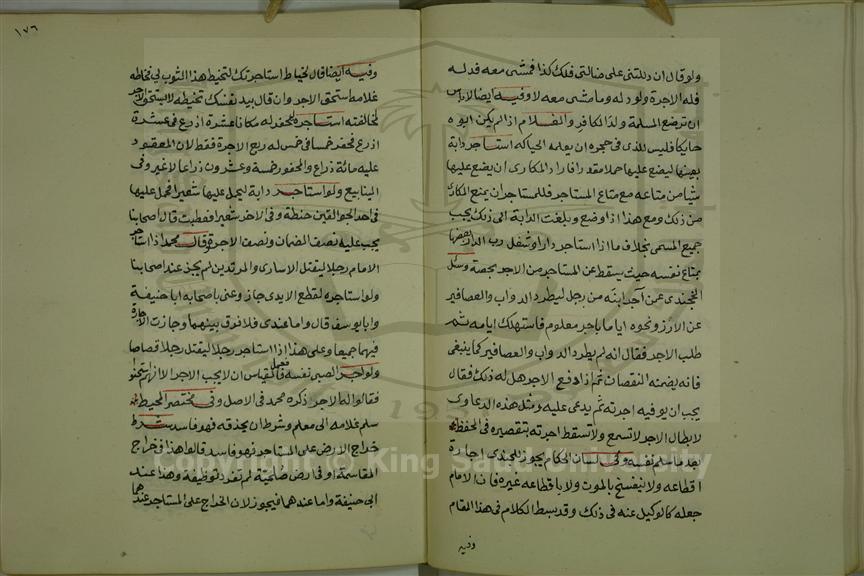 ولو قال ان دللتنى على ضالتى فلك كذا فمشى معه فدله
فله الاجرة ولو دله وما مشى معه لا وفيه ايضا لا باس
ان ترضع المسلمة ولد الكافر والغلام اذا لم يكن ابوه
حايكا فليس للذى فى حجره ان يعلمه الحياكة استاجر دابة
بعينها ليضع عليها حملا مقدرا فاراد المكارى ان يضع عليها
شيا من متاعه مع متاع المستاجر فللمستاجر ان يمنع المكارى
من ذلك ومع هذا اذا وضع وبلغت الدابة الى ذلك يجب
جميع المسمى بخلاف ما اذا استاجر دارا وشغل رب الدار بعضها
بمتاع نفسه حيث يسقط عن المستاجر من الاجر بحصته وسئل
الخجندى عمن آجر ابنه من رجل ليطرد الدواب والعصافير
عن الارز ونحوه اياما باجر معلوم فاستهلك ايامه ثم
طلب الاجر فقال انه لم يطرد الدواب والعصافير كما ينبغى
فانه يضمنه النقصان ثم اذا دفع الاجر هل له ذلك فقال
يجب ان يوفيه اجرته ثم يدعى عليه ومثل هذه الدعاوى
لابطال الاجر لا تسمع ولا تسقط اجرته بتقصيره فى الحفظ
بعد ما سلم نفسه وفى لسان الحكام يجوز للجندى اجارة
اقطاعه ولا تنفسخ بالموت ولا باقطاعه غيره فان الامام
جعله كالوكيل عنه فى ذلك وقد بسط الكلام فى هذا المقام
وفيه
١٧٦
وفيه ايضا قال لخياط استاجرتك لتخيط هذا الثوب لى فخاطه
غلامه استحق الاجر وان قال بيد نفسك تخيطه لا يستحق الاجر
لمخالفته استاجره ليحفر له مكانا عشرة اذرع فى عشرة
اذرع فحفر خمسا فى خمس له ربع الاجرة فقط لان المعقود
عليه مائة ذراع والمحفور خمسة وعشرون ذراعا لا غير وفى
الينابيع ولو استاجر دابة ليحمل عليها شعيرا فحمل عليها
فى احد الجوالقين حنطة وفى الاخر شعيرا فعطبت قال اصحابنا
يجب عليه نصف الضمان ونصف الاجرة وقال محمد اذا استاجر
الامام رجلا ليقتل الاسارى والمرتدين لم يجز عند اصحابنا
ولو استاجره لقطع الايدى جاز وعنى باصحابه ابا حنيفة
وابا يوسف قال واما عندى فلا فرق بينهما وجازت الاجارة
فيهما جميعا وعلى هذا اذا استاجر رجلا ليقتل رجلا قصاصا
ولو اجر الصبى نفسه فعمل فالقياس ان لا يجب الاجر الا انهم استحسنوا
فقالوا له الاجر ذكره محمد فى الاصل وفى مختصر المحيط
سلم غلامه الى معلم وشرط ان يحذقه فهو فاسد شرط
خراج الارض على المستاجر فهو فاسد قالوا هذا فى خراج
المقاسمة او فى ارض صلحية لم تقدر توظيفه وهذا عند
ابى حنيفة واما عندهما فيجوز لان الخراج على المستاجر عندهما
Copyright © King Saud University